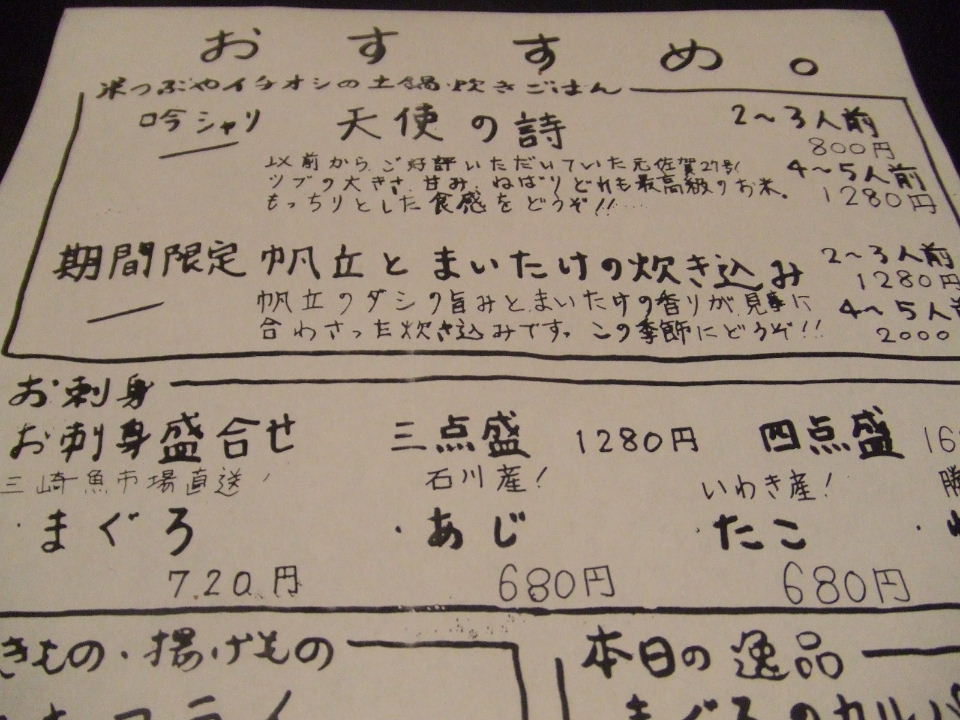 おすすめ。
米つぶやイチオシの土鍋炊きごはん
吟シャリ 天使の詩 2〜3人前
800円
以前からご好評いただいていた元佐賀27号! 4〜5人前
ツブの大きさ、甘み、ねばりどれも最高級のお米。 1280円
もっちりとした食感をどうぞ!!
期間限定 帆立とまいたけの炊き込み 2〜3人前
1280円
帆立のダシの旨みとまいたけの香りが見事に 4〜5人前
合わさった炊き込みです。この季節にどうぞ!! 2000
お刺身
お刺身盛合せ 三点盛 1280円 四点盛
三崎魚市場直送! 石川産! いわき産!
・まぐろ ・あじ ・たこ
720円 680円 680円
きもの・揚げもの 本日の逸品
フライ まぐろのカルパ